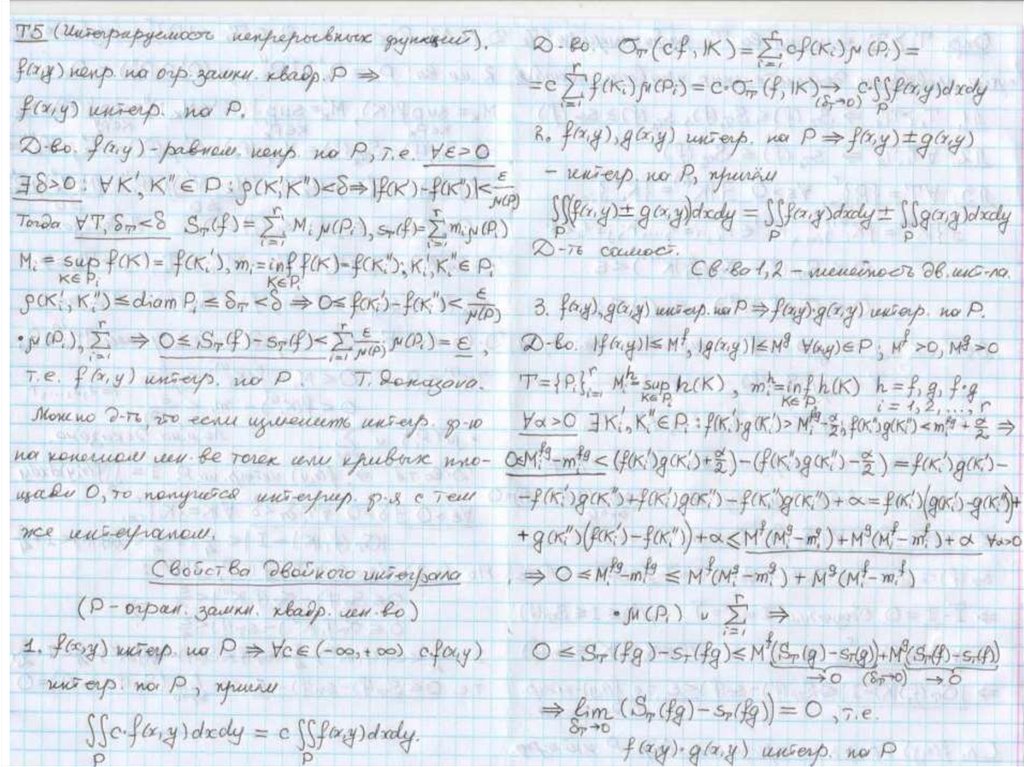 Т5 (Интегрируемость непрерывных функций).
f(x,y) непр. на огр. замкн. квадр. P ⇒
f(x,y) интегр. на P.
Д-во. f(x,y) - равном. непр. на P, т.е. ∀ε>0
∃δ>0 : ∀K', K'' ∈ P : ρ(K',K'')<δ ⇒ |f(K')-f(K'')|< ε/μ(P)
Тогда ∀T, δ_T<δ S_T(f) = ∑_{i=1}^r M_i μ(P_i), s_T(f) = ∑_{i=1}^r m_i μ(P_i)
M_i = sup_{K∈P_i} f(K) = f(K_i'), m_i = inf_{K∈P_i} f(K) = f(K_i''); K_i', K_i'' ∈ P_i
ρ(K_i', K_i'') ≤ diam P_i ≤ δ_T < δ ⇒ 0 ≤ f(K_i') - f(K_i'') < ε/μ(P)
• μ(P_i), ∑_{i=1}^r ⇒ 0 ≤ S_T(f) - s_T(f) < ∑_{i=1}^r ε/μ(P) μ(P_i) = ε,
т.е. f(x,y) интегр. на P. Т. доказана.
Можно д-ть, что если изменить интегр. ф-ю
на конечном мн-ве точек или кривых пло-
щади 0, то получится интегрир. ф-я с тем
же интегралом.
Свойства двойного интеграла
(P - огран. замкн. квадр. мн-во)
1. f(x,y) интегр. на P ⇒ ∀c∈(-∞,+∞) c·f(x,y)
интегр. на P, причём
∬_P c·f(x,y)dxdy = c∬_P f(x,y)dxdy.
Д-во. σ_T(cf, IK) = ∑_{i=1}^r cf(K_i)μ(P_i) =
= c ∑_{i=1}^r f(K_i)μ(P_i) = c·σ_T(f, IK) →_{(δ_T→0)} c·∬_P f(x,y)dxdy
2. f(x,y), g(x,y) интегр. на P ⇒ f(x,y) ± g(x,y)
- интегр. на P, причём
∬_P (f(x,y) ± g(x,y))dxdy = ∬_P f(x,y)dxdy ± ∬_P g(x,y)dxdy
Д-ть самост.
Св-во 1,2 - линейность дв. инт-ла.
3. f(x,y), g(x,y) интегр. на P ⇒ f(x,y)·g(x,y) интегр. на P.
Д-во. |f(x,y)| ≤ M^f, |g(x,y)| ≤ M^g ∀(x,y)∈P; M^f>0, M^g>0
T = {P_i}_{i=1}^r M_i^h = sup_{K∈P_i} h(K), m_i^h = inf_{K∈P_i} h(K) h = f, g, f·g
i = 1,2,...,r
∀α>0 ∃K_i', K_i'' ∈ P_i : f(K_i')g(K_i') > M_i^{fg} - α/2, f(K_i'')g(K_i'') < m_i^{fg} + α/2 ⇒
0 ≤ M_i^{fg} - m_i^{fg} < (f(K_i')g(K_i') + α/2) - (f(K_i'')g(K_i'') - α/2) = f(K_i')g(K_i') -
- f(K_i')g(K_i'') + f(K_i')g(K_i'') - f(K_i'')g(K_i'') + α = f(K_i')(g(K_i') - g(K_i'')) +
+ g(K_i'')(f(K_i') - f(K_i'')) + α ≤ M^f(M_i^g - m_i^g) + M^g(M_i^f - m_i^f) + α ∀α>0
⇒ 0 ≤ M_i^{fg} - m_i^{fg} ≤ M^f(M_i^g - m_i^g) + M^g(M_i^f - m_i^f)
• μ(P_i) и ∑_{i=1}^r ⇒
0 ≤ S_T(fg) - s_T(fg) ≤ M^f(S_T(g) - s_T(g)) + M^g(S_T(f) - s_T(f))
→0 (δ_T→0) →0
⇒ lim_{δ_T→0} (S_T(fg) - s_T(fg)) = 0, т.е.
f(x,y)·g(x,y) интегр. на P